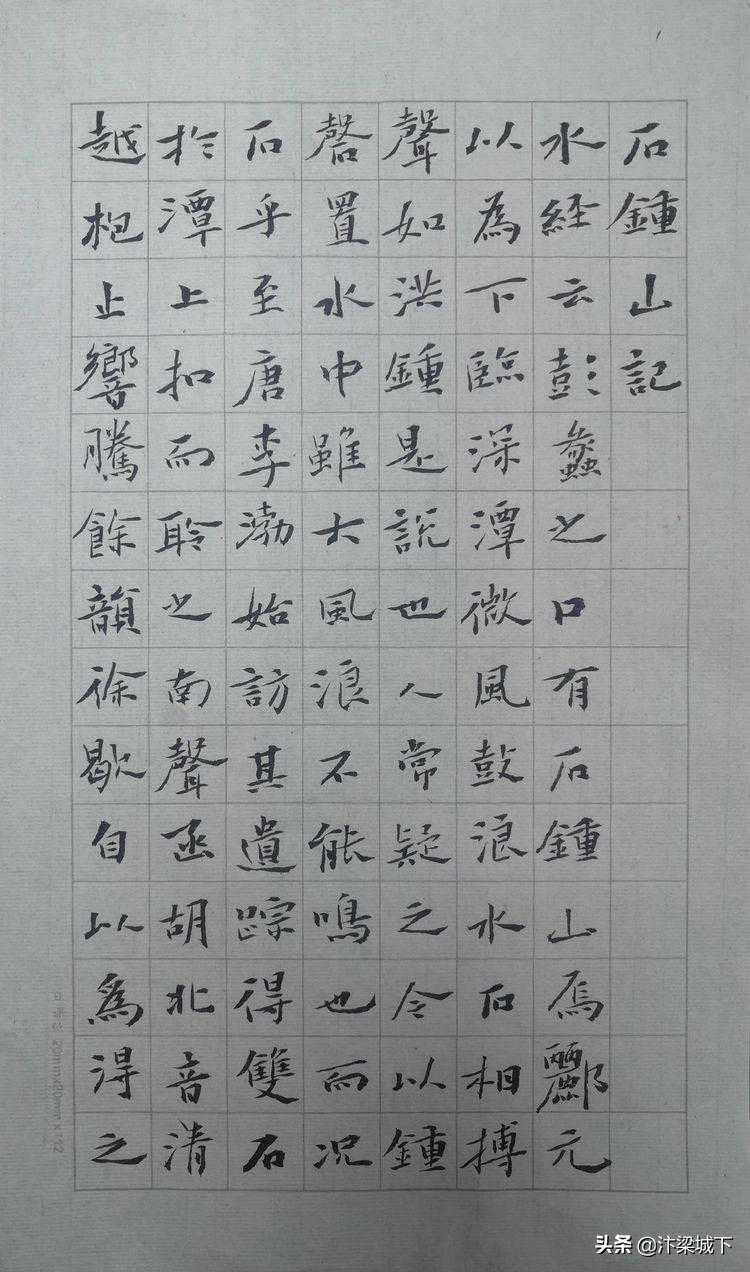 石鍾山記
水経云彭蠡之口有石鍾山焉酈元
以為下臨深潭微風鼓浪水石相搏
聲如洪鍾是説也人常疑之今以鍾
磬置水中雖大風浪不能鳴也而況
石乎至唐李渤始訪其遺踪得雙石
於潭上扣而聆之南聲函胡北音清
越枹止響騰餘韻徐歇自以為得之
头条 @汴梁城下